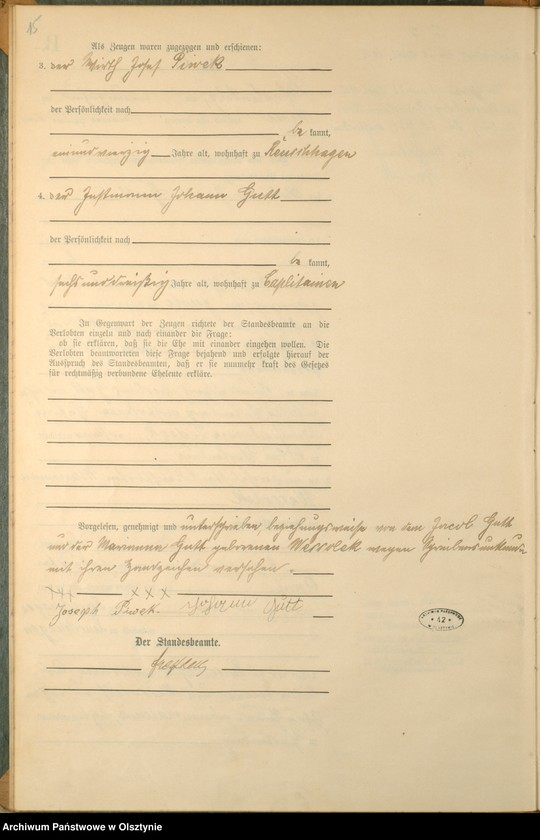 15
Als Zeugen waren zugezogen und erschienen:
3. der Wirth Josef Piwek
der Persönlichkeit nach
be kannt,
einundvierzig Jahre alt, wohnhaft zu Reuschhagen
4. der Instmann Johann Gutt
der Persönlichkeit nach
be kannt,
sechsunddreißig Jahre alt, wohnhaft zu Caplitainen
In Gegenwart der Zeugen richtete der Standesbeamte an die
Verlobten einzeln und nach einander die Frage:
ob sie erklären, daß sie die Ehe mit einander eingehen wollen. Die
Verlobten beantworteten diese Frage bejahend und erfolgte hierauf der
Ausspruch des Standesbeamten, daß er sie nunmehr kraft des Gesetzes
für rechtmäßig verbundene Eheleute erkläre.
Vorgelesen, genehmigt und unterschrieben, beziehungsweise von dem Jacob Gutt
und der Marianna Gutt geborenen wegen Schreibensunkunde
mit ihren Handzeichen versehen.
XXX XXX
Joseph Piwek. Johann Gutt
Der Standesbeamte.
42
Archiwum Państwowe w Olsztynie